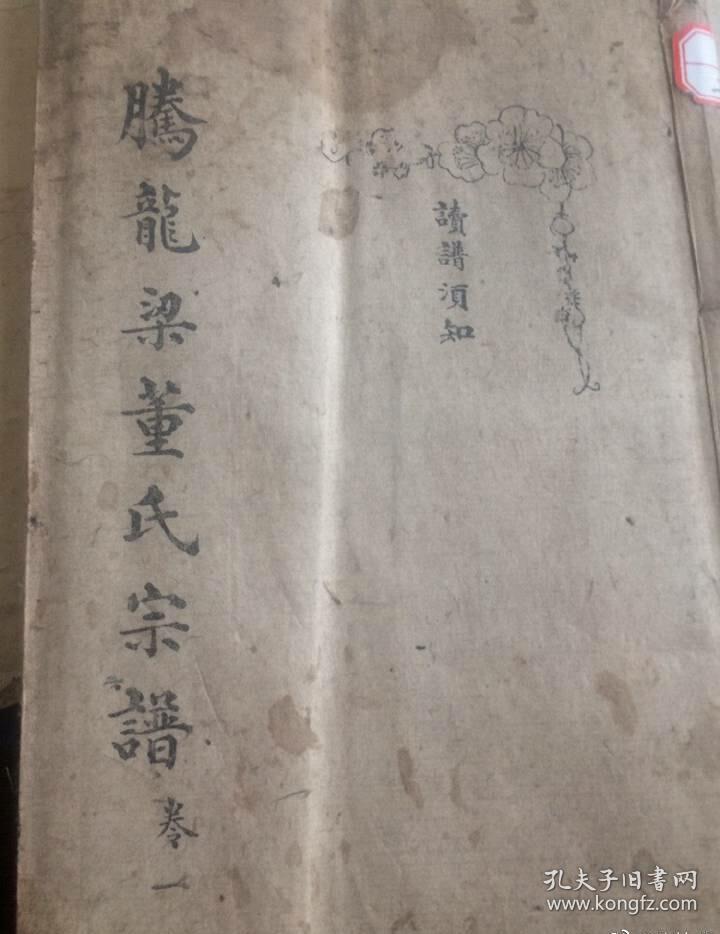 騰龍梁董氏宗譜
卷一
讀譜須知
孔夫子旧书网
www.kongfz.com